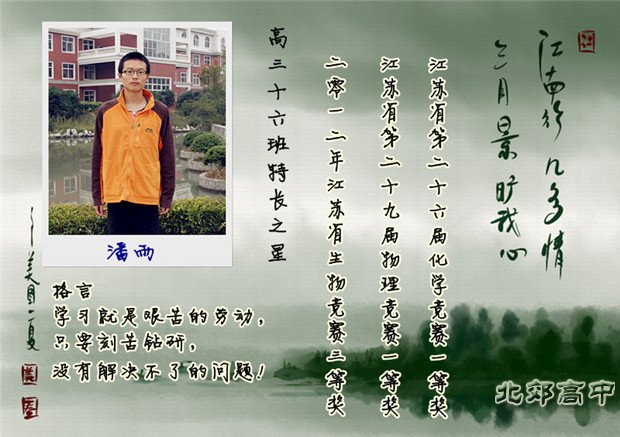 江南行 几多情
三月景 旷我心
江苏省第二十六届化学竞赛一等奖
江苏省第二十九届物理竞赛一等奖
二零一二年江苏省生物竞赛三等奖
高三十六班特长之星
潘雨
格言
学习就是艰苦的劳动，
只要刻苦钻研，
没有解决不了的问题！
北郊高中